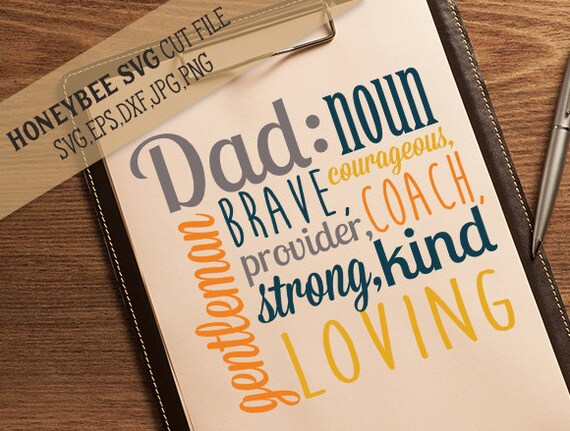 HONEYBEE SVG CUT FILE
SVG,EPS,DXF,JPG,PNG
Dad: noun
BRAVE, courageous,
provider, COACH,
strong, kind
LOVING
gentleman